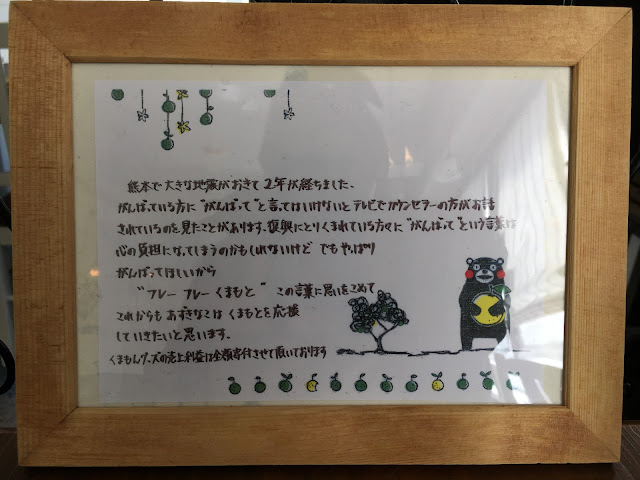 熊本で大きな地震がおきて 2年が経ちました、
がんばっている方に "がんばって" と言ってはいけないと テレビでカウンセラーの方がお話
されているのを見たことがあります。復興にとりくまれている方々に "がんばって" という言葉は
心の負担になってしまうのかもしれないけど でも やっぱり
がんばってほしいから
"フレー フレー くまもと" この言葉に思いをこめて
これからも あずきなこは くまもとを応援
していきたいと思います.
くまもんグッズの売上利益は全額寄付させて頂いております